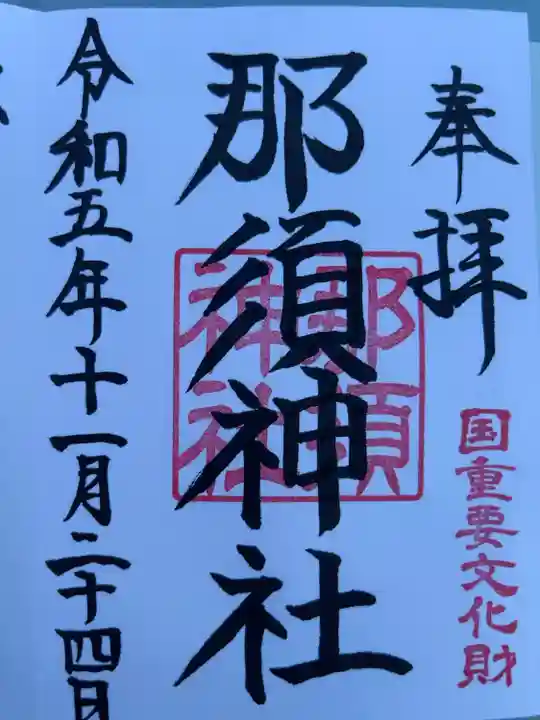 奉拝
国重要文化財
那須神社
那須神社
令和五年十一月二十四日